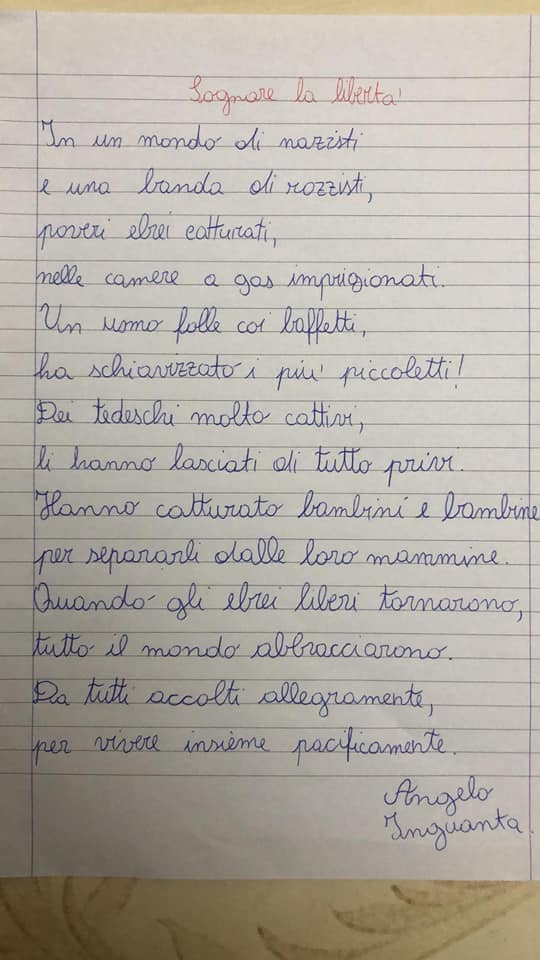 Sognare la libertà
In un mondo di nazisti
e una banda di rozzisti,
poveri ebrei catturati,
nelle camere a gas imprigionati.
Un uomo folle coi baffetti,
ha schiavizzato i piu' piccoletti!
Dei tedeschi molto cattivi,
li hanno lasciati di tutto privi.
Hanno catturato bambini e bambine
per separarli dalle loro mammine.
Quando gli ebrei liberi tornarono,
tutto il mondo abbracciarono.
Da tutti accolti allegramente,
per vivere insieme pacificamente.
Angelo
Inguanta.